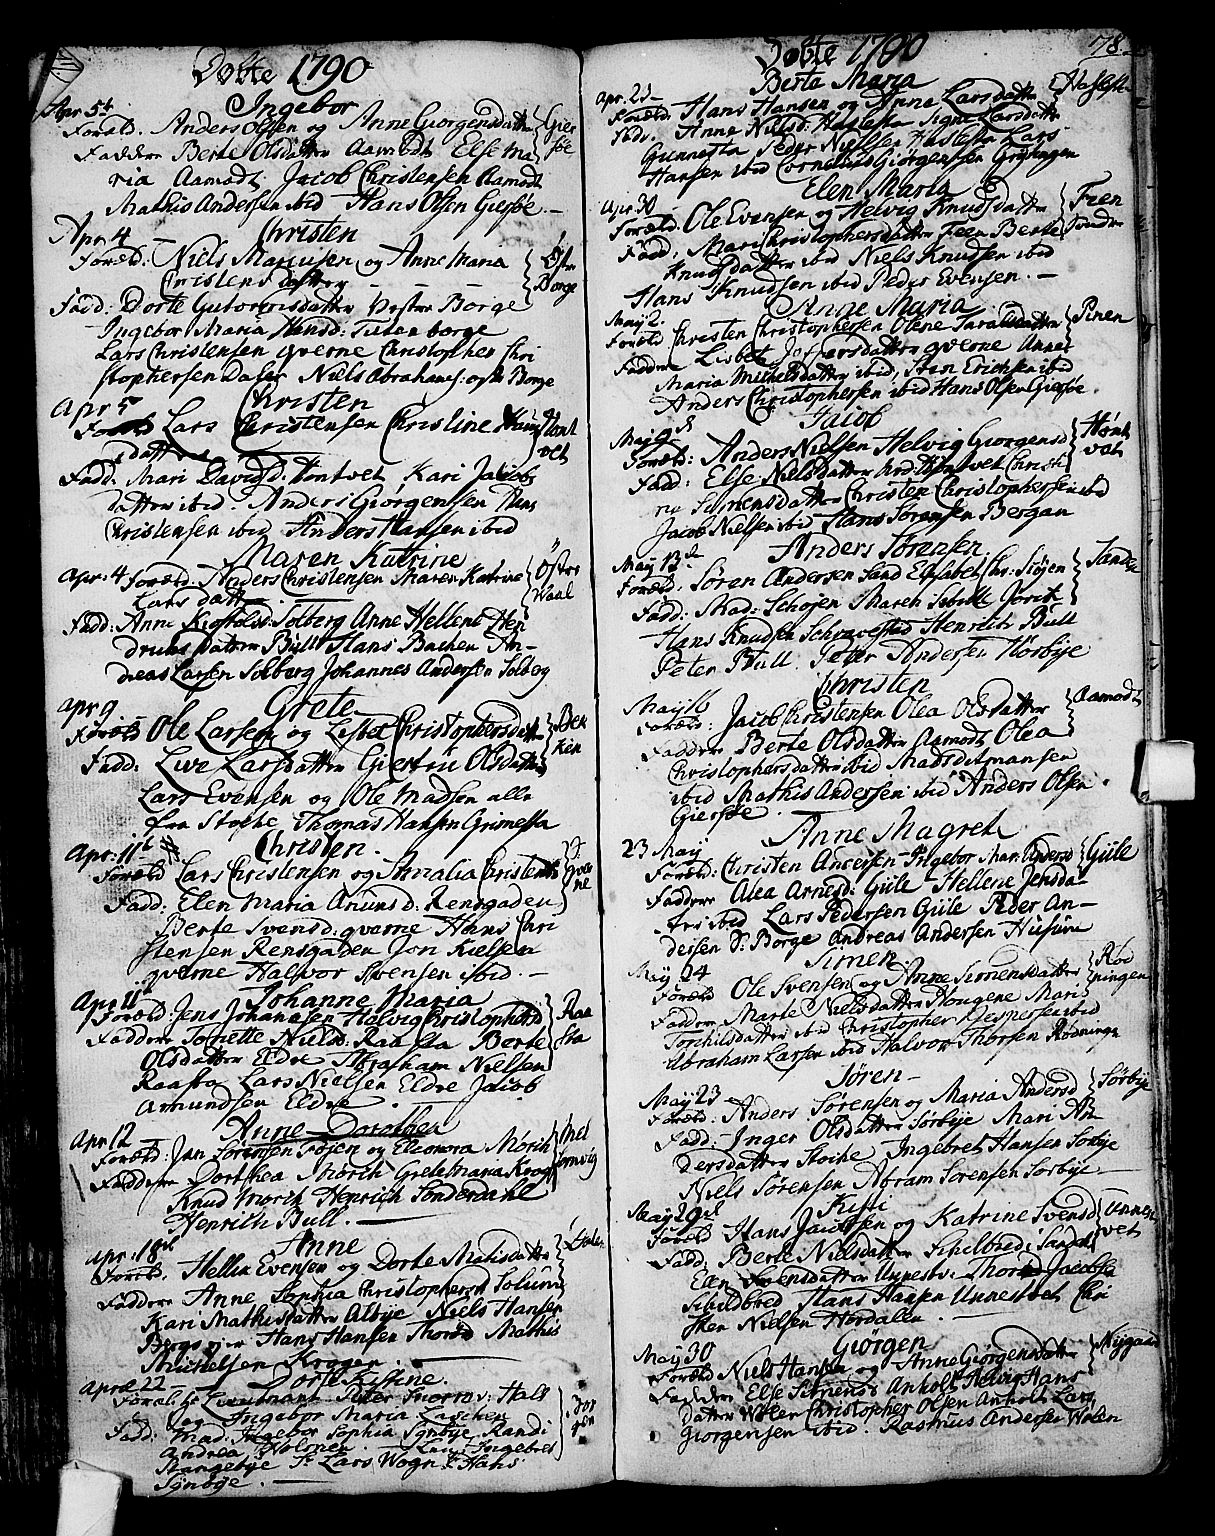 Døbte 1790
Ingebor
Apr. 5t
Foræld. Anders Olsen og Anne Giorgensdatter Gier
Faddere Berte Olsdatter Aamodt Else Ma søe
ria Aamodt Jacob Christensen Aamodt
Mathis Andersen ibid Hans Olsen Giersøe
Apr 4 Christen
Foræld. Niels Mariusen og Anne Maria Østre
Christensdatter Borge
Fadd: Dorte Gutormsdatter Vestre Borge
Ingebor Maria Hansd:
Lars Christensen gverne Christopher Chri
stophersen Niels Abrahams: Borge
Apr 5 Christen
Foræld Lars Christensen Christine Hans Hont
datter vet
Fadd: Mari Davidsd. Hontvet Kari Jacobs
datter ibid. Anders Giorgensen Hans
Christensen ibid Anders Hansen ibid
Maren Katrine
Apr: 4 Foræld. Anders Christensen Maren Katrine Østre
Lars datter Waal
Fadd: Anne Solberg Anne Hellene Hen
driks datter Bull Hans Bachen An-
dreas Larsen Solberg Johannes Andersen Solberg
Apr 9 Grete
Foræld Ole Larsen og Lisbet Christophersdatter Bek
Fadd: Live Larsdatter Giertru Olsdatter ken
Lars Evensen og Ole Madsen alle
fra Stoche Thomas Hansen Grimesta
Apr: 11t Christen.
Foræld: Lars Christensen og Amalia Christens
Fadd: Elen Maria Amunsd. Rensgaden
Berte Svensd: gverne Hans Chri
stensen Rensgaden Jon Kielsen
gverne Halvor Svensen ibid.
Apr 11t Johanne Maria
Foræld. Jens Johansen Helvig Christophersd Raa
Faddere Tonette Nielsd: Raasta Berte sta
Olsdatter Eldre Abraham Nielsen
Raasta Lars Nielsen Eldre Jacob
Amundsen Eldre
Apr 12 Anne Dorothea
Foræld: Jan Sørensen Søjen og Eleonora Mørch Mel
Faddere Dorthea Mørch Grete Maria Krog somvig
Knud Mørch Henrich Sønderdahl
Henrich Bull.
Apr. 18de Anne
Foræld. Hellin Evensen og Dorte Matisdatter
Faddere Anne Sophia Christophersd Solum
Kari Mathisdatter Albye Niels Hansen
Hans Hansen Thorød Mathis
Michelsen Krogen
Aprel 22 Dorte Kistine.
Foræld: Hr Lieutnant Peter Hals
og Ingebor Maria
Fadd: Mad. Ingebor Sophia Synbye Randi
Andrea Holonen Lieu: Ingebret
Stangebye Lars Wogn Hans
Synbye.
78
Døbte 1790
Berte Maria
Apr. 25 Haslesta
Foræld: Hans Hansen og Anne Larsdatter
Fadr. Anne Nielsd: Haslesta Signe Larsdatter
Gunnesta Peder Nielsen Haslesta Lars
Hansen ibid Cornelius Giørgensen
Elen Maria
Apr. 30
Foræld: Ole Evensen og Helvig Knudsdatter Feen
Fadd. Mari Christophersdatter Feen Berte
Knudsdatter ibid Niels Knudsen ibid
Hans Knudsen ibid Peder Evensen.
May 2. Anne Maria
Foræld Christen Christophersen Olene Taraldsdatter Pinen
Faddere Lisbet Jespersdatter gverne Anne
Maria Michelsdatter ibid, Sten Erichsen ibid
Anders Christophersen ibid Hans Olsen Giersøe.
May 9d Jacob
Foræld: Anders Nielsen Helvig Giorgensd Hønt
Fadd: Else Nielsdatter Hontvet Christi vet
ne Sørensdatter Christen Christophersen ibid
Jacob Nielsen ibid Hans Sørensen Bergan
May 13d Anders Sørensen.
Foræld. Søren Andersen Sand Elisabet Chr: Siøjen Sande
Fadd: Mad: Schøjen Maren Bull Jorit
Hans Knudsen Schravestad Henrich Bull
Peter Bull. Peter Andersen Hørbye
May 16 Christen
Foræld: Jacob Christensen Olea Olsdatter Aamodt
Faddere Berte Olsdatter Aamodt Olea
Christophersdatter ibid Mads Ditmansen
ibid Mathis Andersen ibid Anders Olsen
Giersøe.
23 May Anne Magreth
Foræld: Christen Andersen Ingebor Mar. Andersd Giile
Faddere Alea Arnesd: Giile Hellene Jensda-
ter ibid Lars Pedersen Giile Peder An-
dersen S. Borge Andreas Andersen Husum
May 24 Simen. Rød
Foræld Ole Svensen og Anne Simensdatter ningen
Faddere Marte Nielsdatter Haugene Mari
Torchilsdatter ibid Christopher Jespersen ibid
Abraham Larsen ibid Halvor Thorsen Rødninge
Søren
May 23
Foræld: Anders Sørensen og Maria Andersd Sørbye
Fadd: Inger Olsdatter Sørbye Mari An
dersdatter Stoche Ingebret Hansen Sørbye
Niels Sørensen Abram Sørensen Sørbye
May 29de
Foræld Hans Jacobsen og Katrine Svensd Unnes
Fadd: Berte Nielsdatter Schelbred: Sandal vet
Elen Svensdatter Unnestv. Jacobsen
Schilbred Hans Hansen Unnestvet Chri
sten Nielsen Hørdalen
May 30 Giørgen
Foræld Niels Hansen og Anne Giørgensdatter Nygaar
Faddere Else Simens: Anholt Helvig Hans
datter Wølen Christopher Olsen Anholt Lars
Giørgensen ibid. Rasmus Andersen Wølen